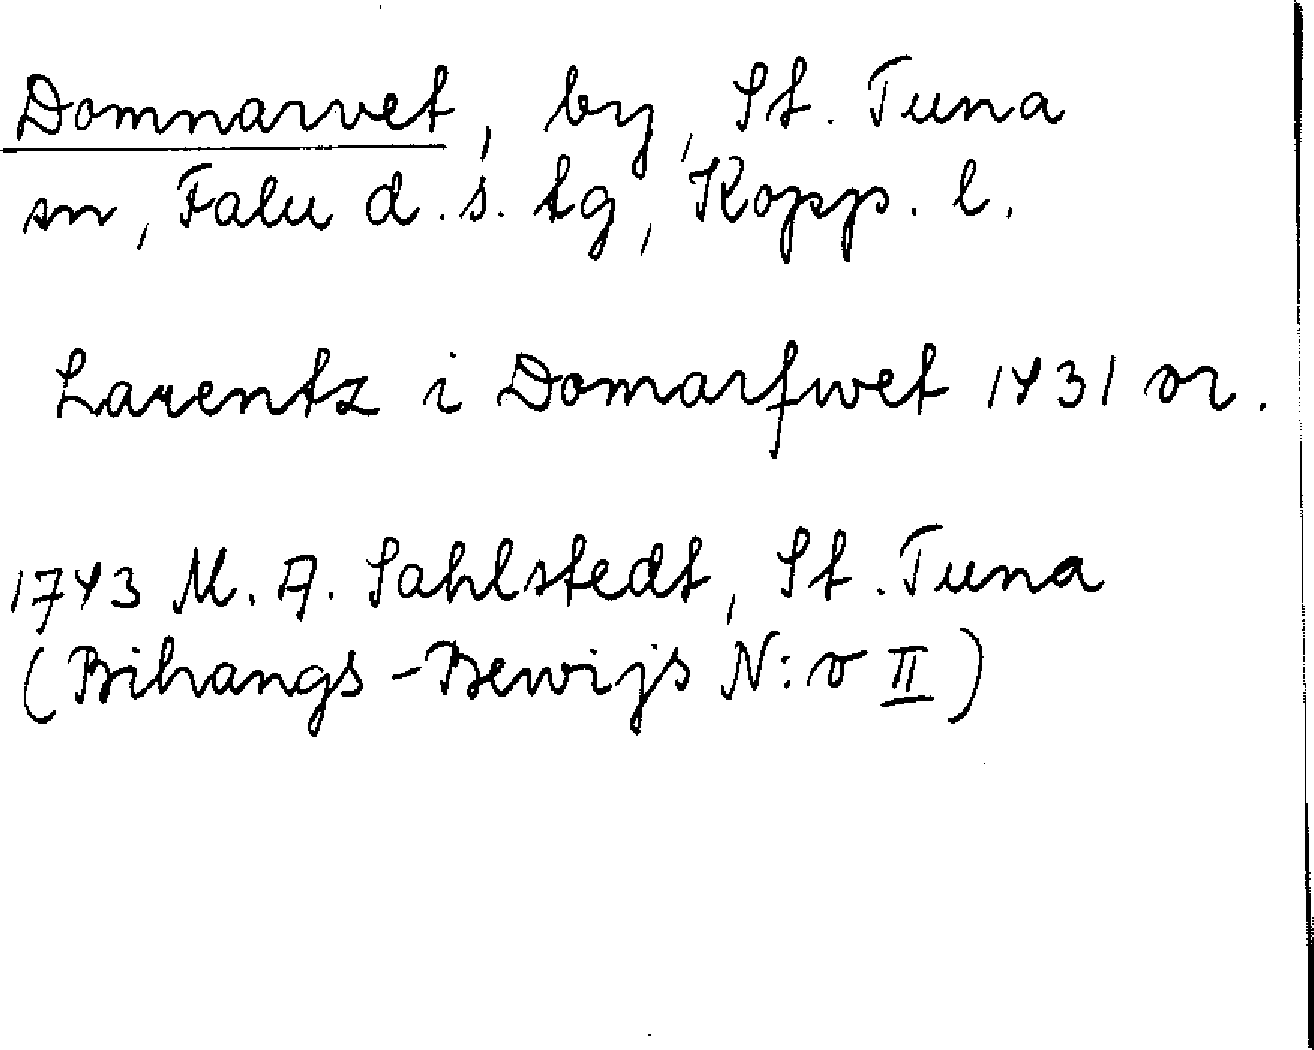 Domnarvet, by, St. Tuna
sn, Falu d. s. tg, Kopp. l.
Larentz i Domarfwet 1431 or.
1743 M. A. Sahlstedt, St. Tuna
(Bihangs-Bewijs N:o II)